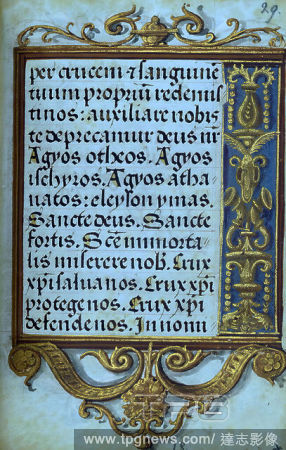 29.
per crucem & sanguinē
tuum propriū redemis
ti nos: auxiliare nobis
te deprecamur deus nr̄
Agyos otheos. Agyos
ischyros. Agyos atha
natos: eleyson ymas.
Sancte deus. Sancte
fortis. Scē immorta
lis miserere nob. Crux
xp̄i salua nos. Crux xp̄i
protege nos. Crux xp̄i
defende nos. In nomi
www.tpgnews.com / 達志影像